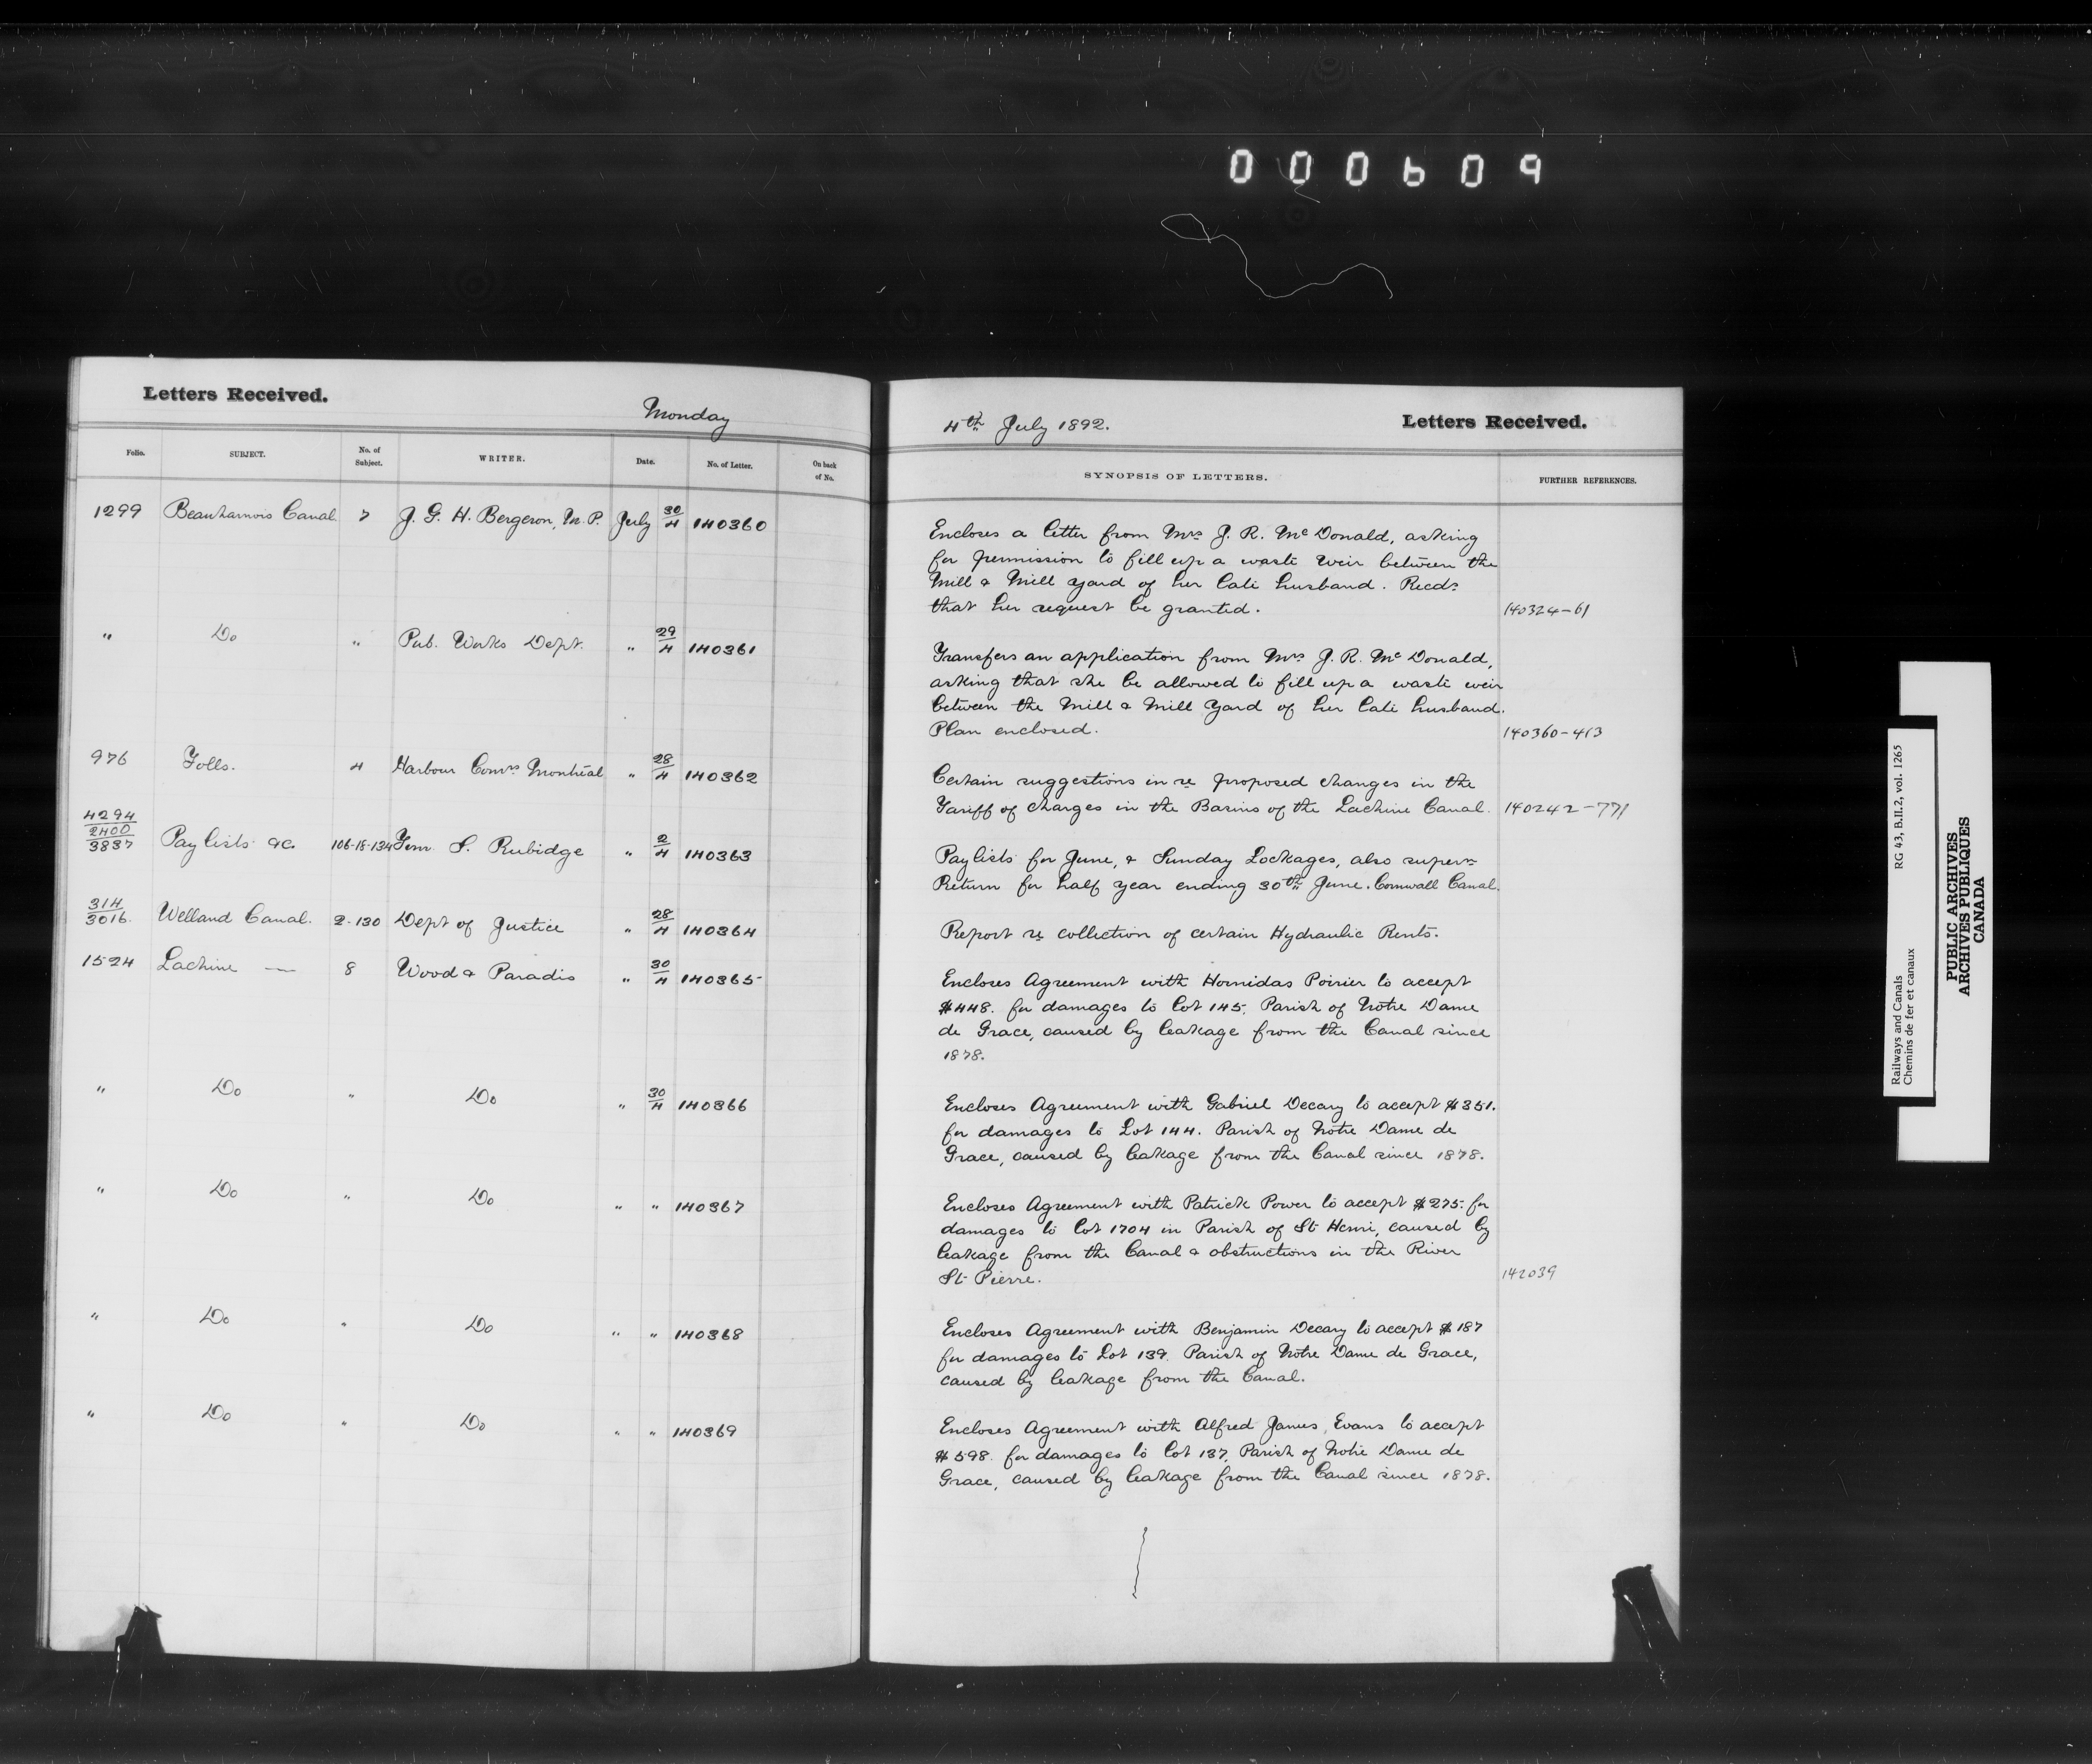 000609
Letters Received.
Monday
Folio. SUBJECT. No. of Subject. WRITER. Date. No. of Letter. On back of No.
1299 Beauharnois Canal 7 J. G. H. Bergeron, M.P. July 30/4 140360
" Do " Pub. Works Dept. " 29/4 140361
976 Tolls. 4 Harbour Comrs Montreal " 28/4 140362
4294/2400/3837 Pay lists &c. 106-18-134 Tom S. Rubidge " 2/4 140363
314/3016. Welland Canal. 2-130 Dept of Justice " 28/4 140364
1524 Lachine — 8 Wood & Paradis " 30/4 140365
" Do " Do " 30/4 140366
" Do " Do " " 140367
" Do " Do " " 140368
" Do " Do " " 140369
4th July 1892.
Letters Received.
SYNOPSIS OF LETTERS. FURTHER REFERENCES.
Encloses a letter from Mrs J. R. McDonald, asking
for permission to fill up a waste weir between the
Mill & Mill yard of her late husband. Recds
that her request be granted. 140324-61
Transfers an application from Mrs J. R. McDonald,
asking that she be allowed to fill up a waste weir
between the Mill & Mill Yard of her late husband.
Plan enclosed. 140360-413
Certain suggestions in re proposed changes in the
Tariff of charges in the Basins of the Lachine Canal. 140242-771
Pay lists for June, & Sunday Lockages, also supern
Return for half year ending 30th June. Cornwall Canal.
Report re collection of certain Hydraulic Rents.
Encloses Agreement with Hormidas Poirier to accept
$448. for damages to lot 145. Parish of Notre Dame
de Grace, caused by leakage from the Canal since
1878.
Encloses Agreement with Gabriel Decary to accept $351.
for damages to Lot 144. Parish of Notre Dame de
Grace, caused by leakage from the Canal since 1878.
Encloses Agreement with Patrick Power to accept $275. for
damages to lot 1704 in Parish of St Henri, caused by
leakage from the Canal & obstructions in the River
St Pierre. 142039
Encloses Agreement with Benjamin Decary to accept $187
for damages to Lot 139. Parish of Notre Dame de Grace,
caused by leakage from the Canal.
Encloses Agreement with Alfred James Evans to accept
$598. for damages to lot 137, Parish of Notre Dame de
Grace, caused by leakage from the Canal since 1878.
Railways and Canals RG 43, B.II.2, vol. 1265
Chemins de fer et canaux
PUBLIC ARCHIVES
ARCHIVES PUBLIQUES
CANADA